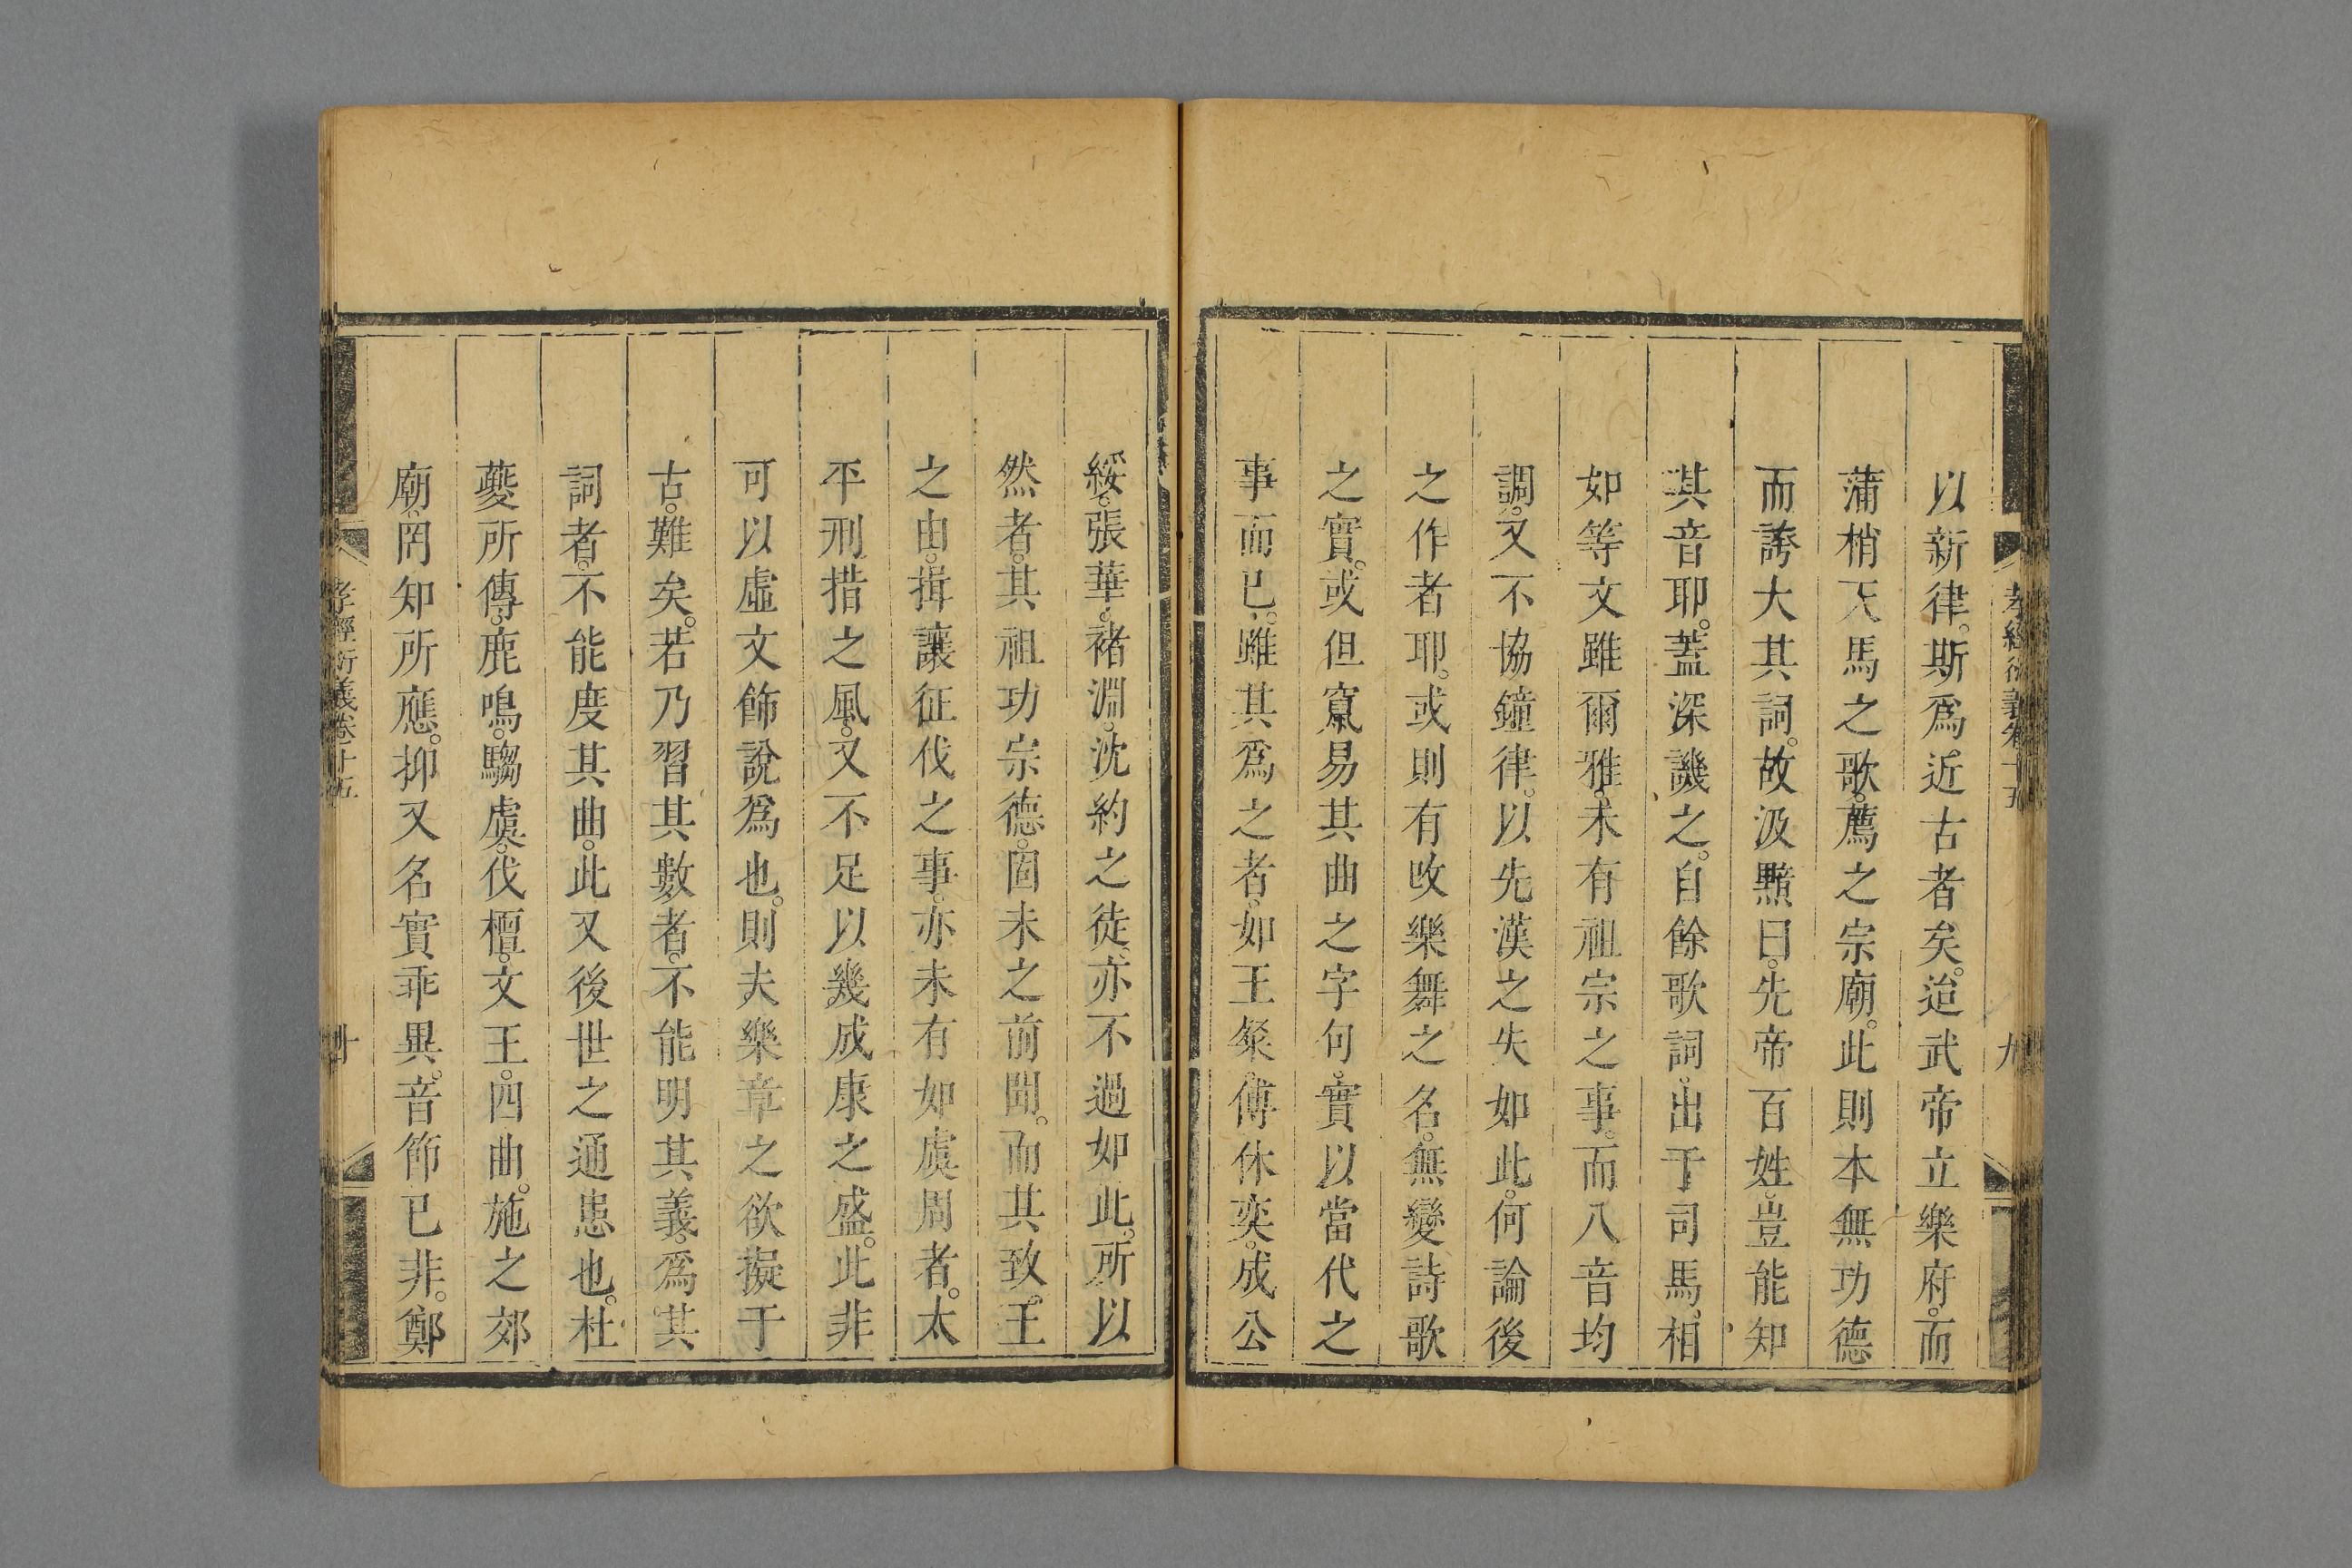 孝經衍義卷十五
九
以新律。斯爲近古者矣。迨武帝立樂府。而
蒲梢天馬之歌。薦之宗廟。此則本無功德
而誇大其詞。故汲黯曰。先帝百姓。豈能知
其音耶。蓋深譏之。自餘歌詞。出于司馬相
如等文雖爾雅。未有祖宗之事。而八音均
調。又不協鐘律。以先漢之失如此。何論後
之作者耶。或則有改樂舞之名。無變詩歌
之實。或但竄易其曲之字句。實以當代之
事而已。雖其爲之者。如王粲傅休奕。成公
綏。張華。褚淵。沈約之徒。亦不過如此。所以
然者。其祖功宗德。固未之前聞。而其致。王
之由。揖讓征伐之事。亦未有如虞周者。太
平刑措之風。又不足以幾成康之盛。此非
可以虛文飾說爲也。則夫樂章之欲擬于
古。難矣。若乃習其數者。不能明其義。爲其
詞者。不能度其曲。此又後世之通患也。杜
夔所傳。鹿鳴。騶虞。伐檀。文王。四曲。施之郊
廟。罔知所應。抑又名實乖異。音節已非。鄭
孝經衍義卷十五
十